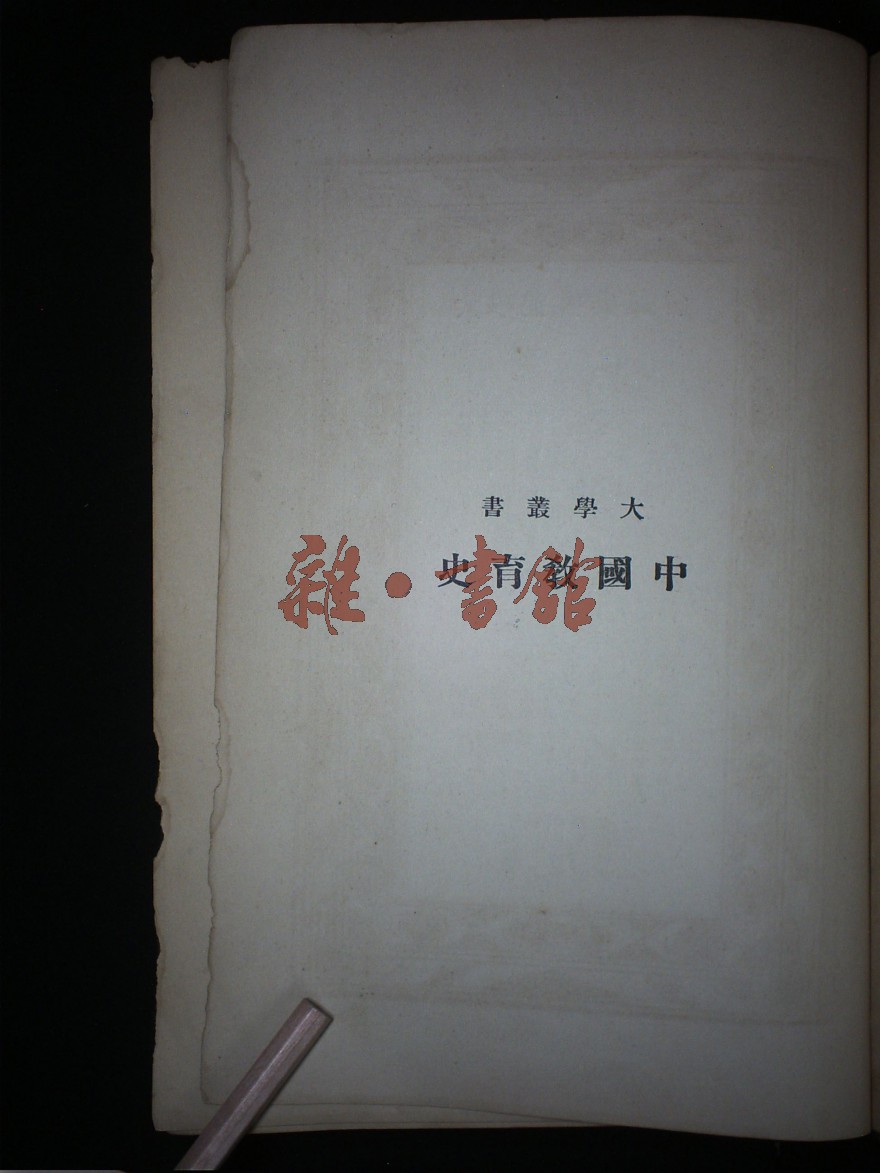 大學叢書
中國教育史
雜·書館